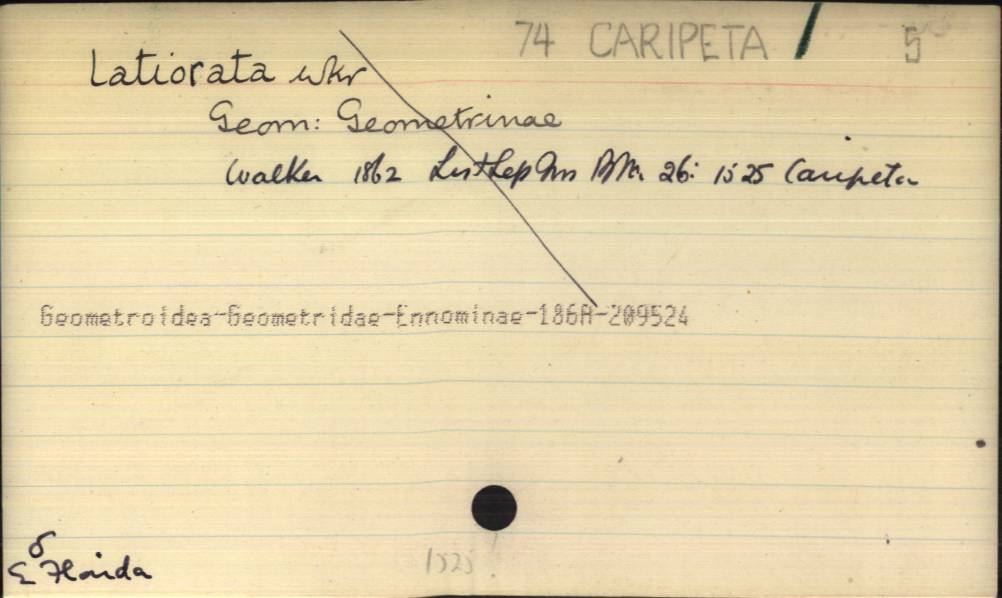 74 CARIPETA / 5
Latiorata wkr
Geom: Geometrinae
Walker 1862 List Lep Ins B.M. 26: 1525 Caripeta
Geometroidea-Geometridae-Ennominae-186A-209524
♂
E Florida
1525